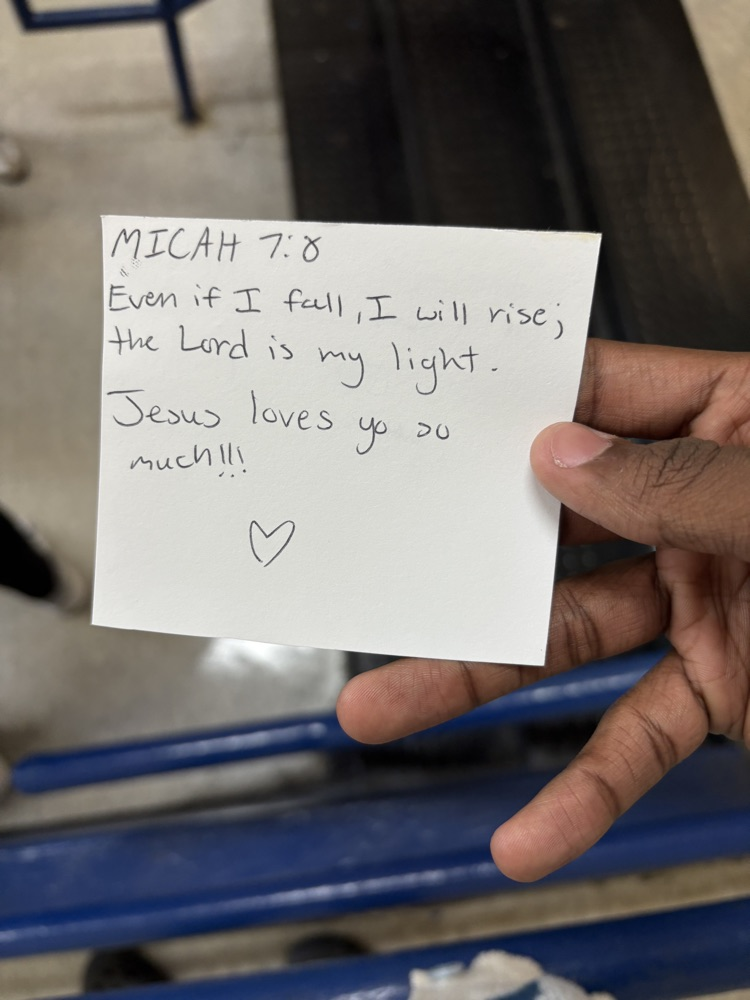 MICAH 7:8
Even if I fall, I will rise;
the Lord is my light.
Jesus loves yo so
much!!!